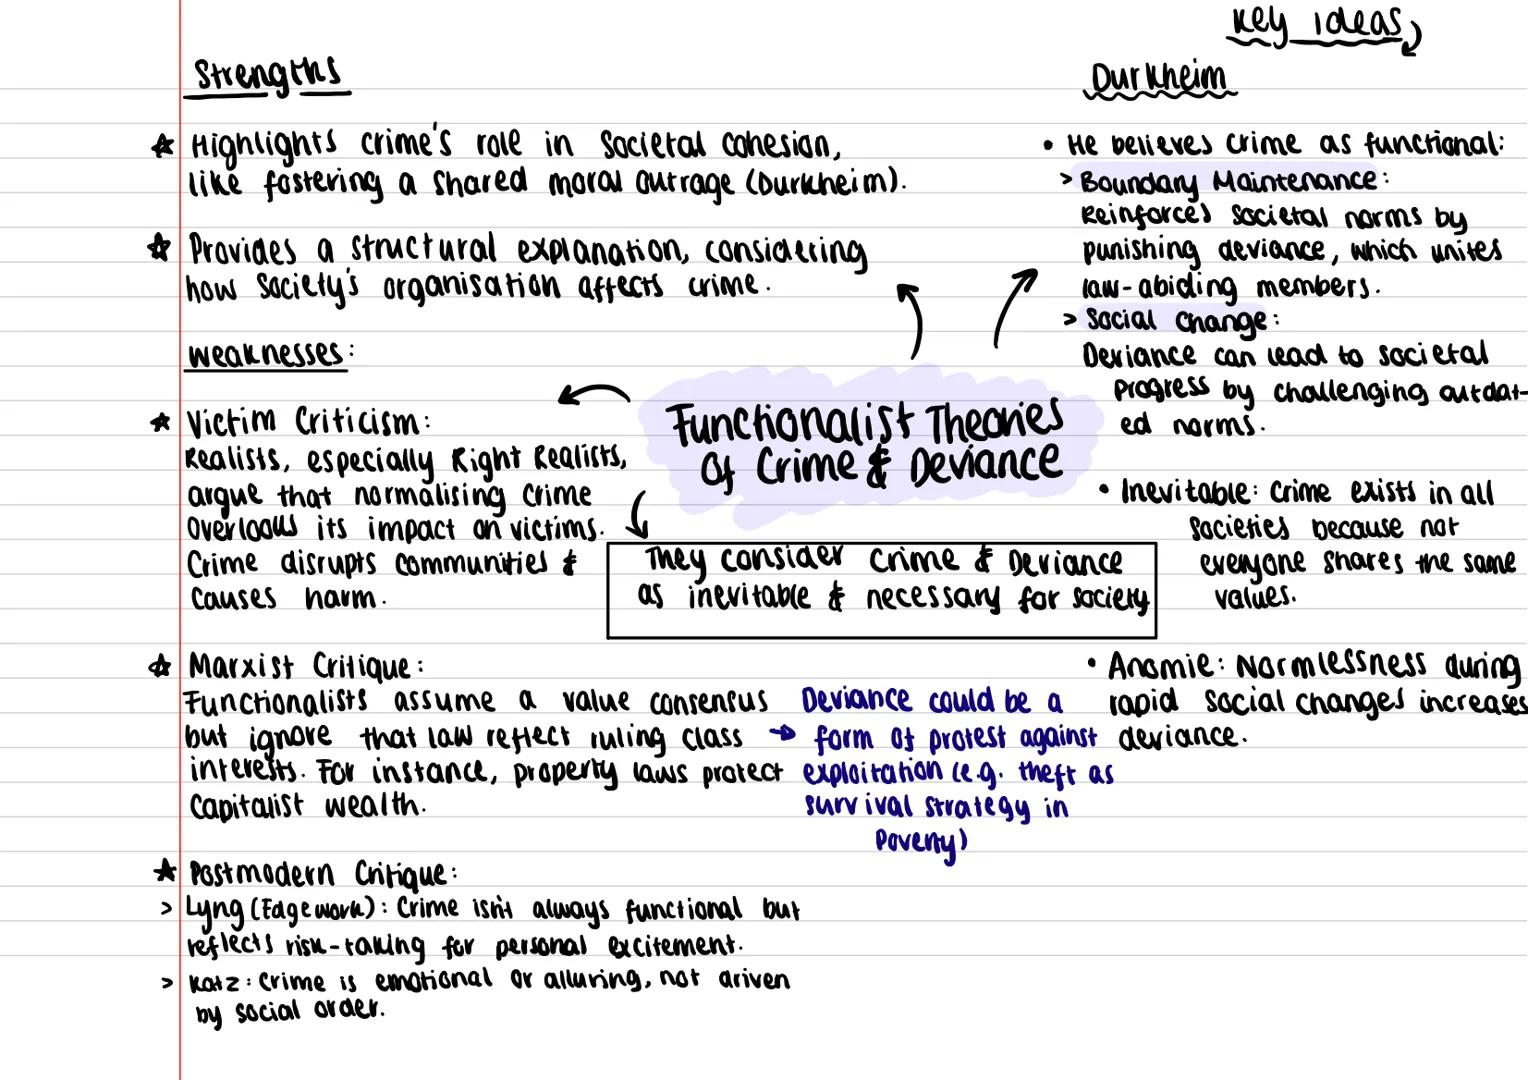 Key ideas
Strengths
Durkheim
Highlights crime's role in societal cohesion,
like fostering a shared moral outrage (Durkheim).
Provides a structural explanation, considering
how society's organisation affects crime.
• He believes crime as functional:
> Boundary Maintenance:
Reinforces societal norms by
punishing deviance, which unites
law-abiding members.
> Social change:
Deviance can lead to societal
progress by challenging outdat-
ed norms.
weaknesses:
Functionalist Theories
Of Crime & Deviance
They consider crime & Deviance
as inevitable & necessary for society
Victim Criticism:
Realists, especially Right Realists,
argue that normalising crime
overlooks its impact on victims.
Crime disrupts communities &
causes harm.
• Inevitable: crime exists in all
societies because not
everyone shares the same
values.
Marxist Critique:
Functionalists assume a value consensus
but ignore that law reflect ruling class
interests. For instance, property laws protect
Capitalist wealth.
→ Deviance could be a
form of protest against
exploitation (e.g. theft as
survival strategy in
Poverty)
• Anomie: Normlessness during
rapid social changes increases
deviance.
Postmodern Critique:
> Lyng (Edgework): Crime isn't always functional but
reflects risk-taking for personal excitement.
> Katz: Crime is emotional or alluring, not driven
by social order.